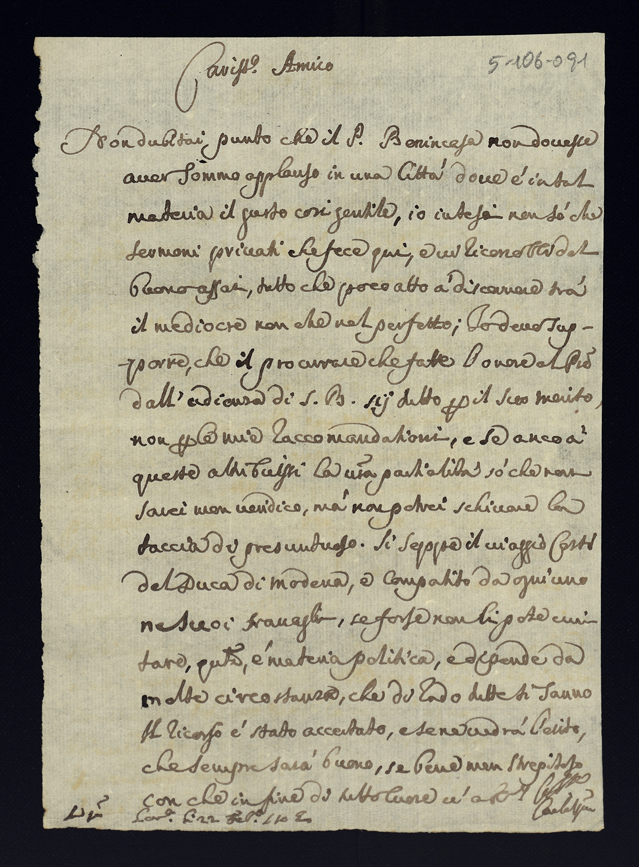 Cariss.o Amico
5-106-091
Non dubitai punto che il P. Benincasa non douesse
auer sommo applauso in una Città doue è in tal
materia il gusto così gentile, io intesi non sò che
sermoni priuati che fece qui, e ui riconobbi del
buono assai, tutto che poco atto à discernere trà
il mediocre non che nel perfetto; Io deuo sup-
porre, che il procurare che fatte l'onore al
dall'udienza di S. B. sij tutto il suo merito,
non le mie raccomandationi, e se anco à
queste attribuissi la ura partialità sò che non
sarei men ueridico, mà non potrei schiuare la
taccia di presuntuoso. Si seppe il uiaggio
del Duca di Modena, e compatito da ogn'uno
ne suoi trauagli, se forse non li potè eui-
tare, è materia politica, e dipende da
molte circostanze, che di rado tutte si sanno
Il ricorso è stato accertato, e se ne uedrà l'esito,
che sempre sarà buono, se bene men strepitoso
con che in fine di tutto cuore u'
22